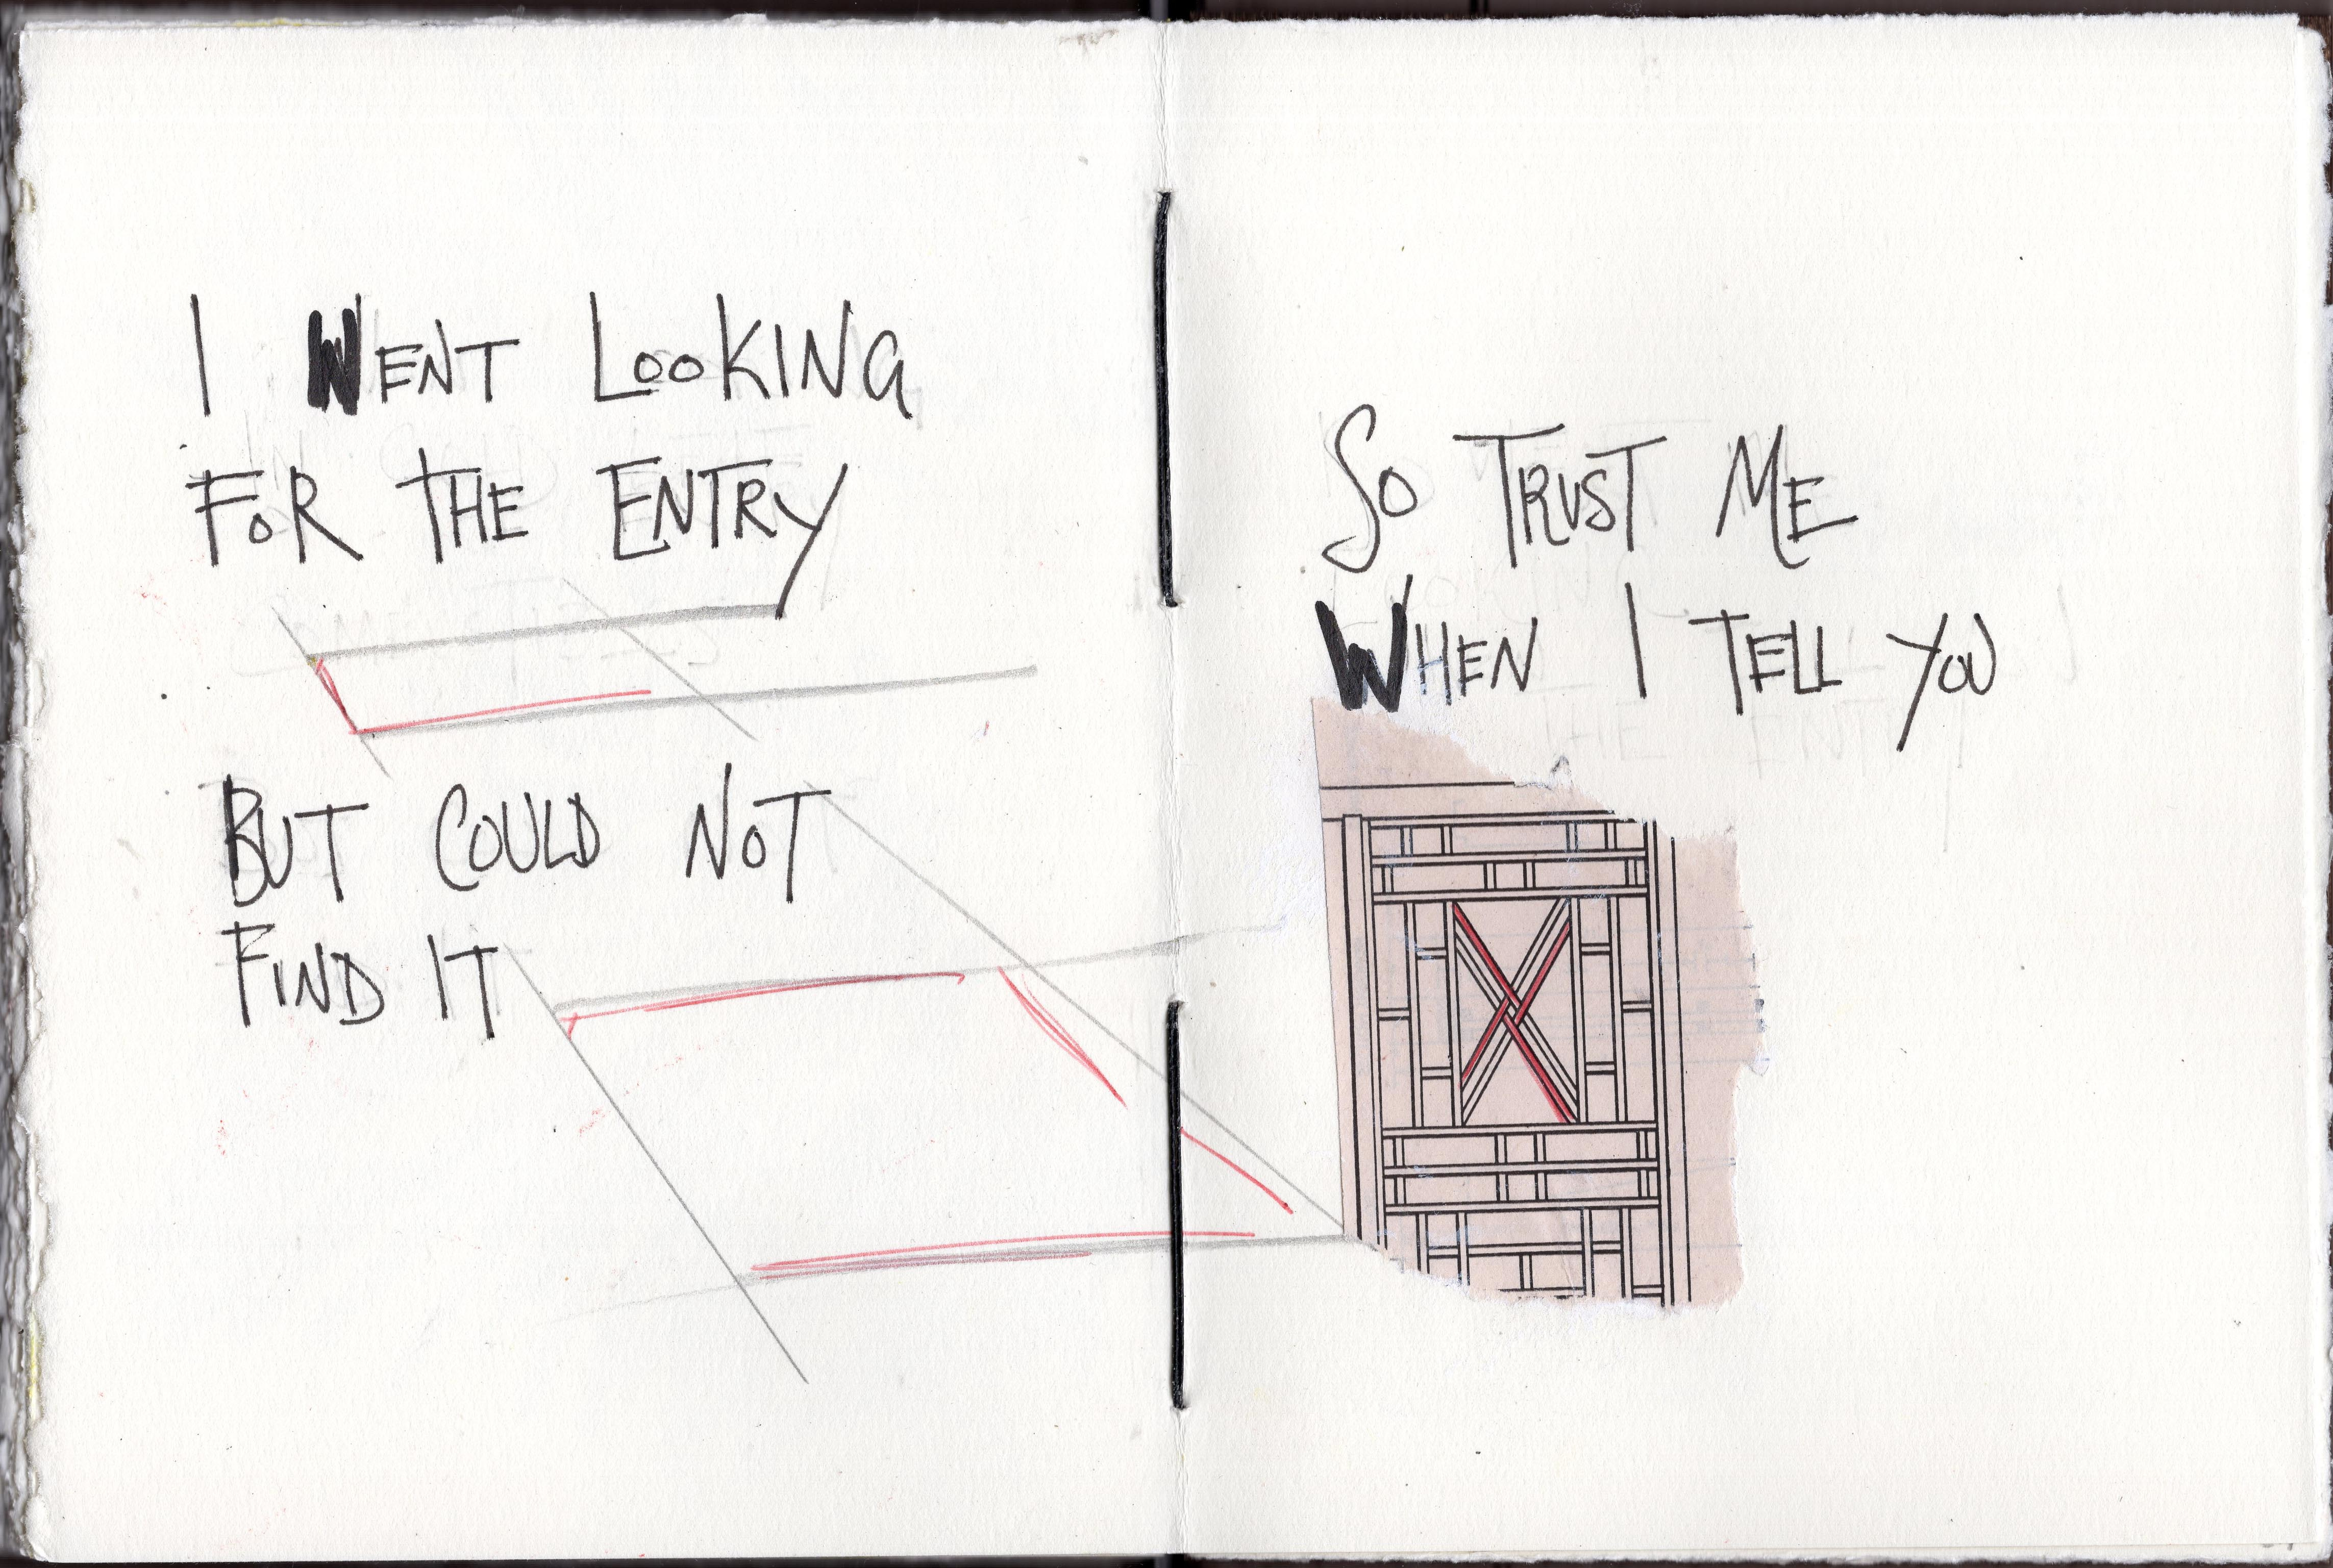 I WENT LOOKING
FOR THE ENTRY
BUT COULD NOT
FIND IT
SO TRUST ME
WHEN I TELL YOU